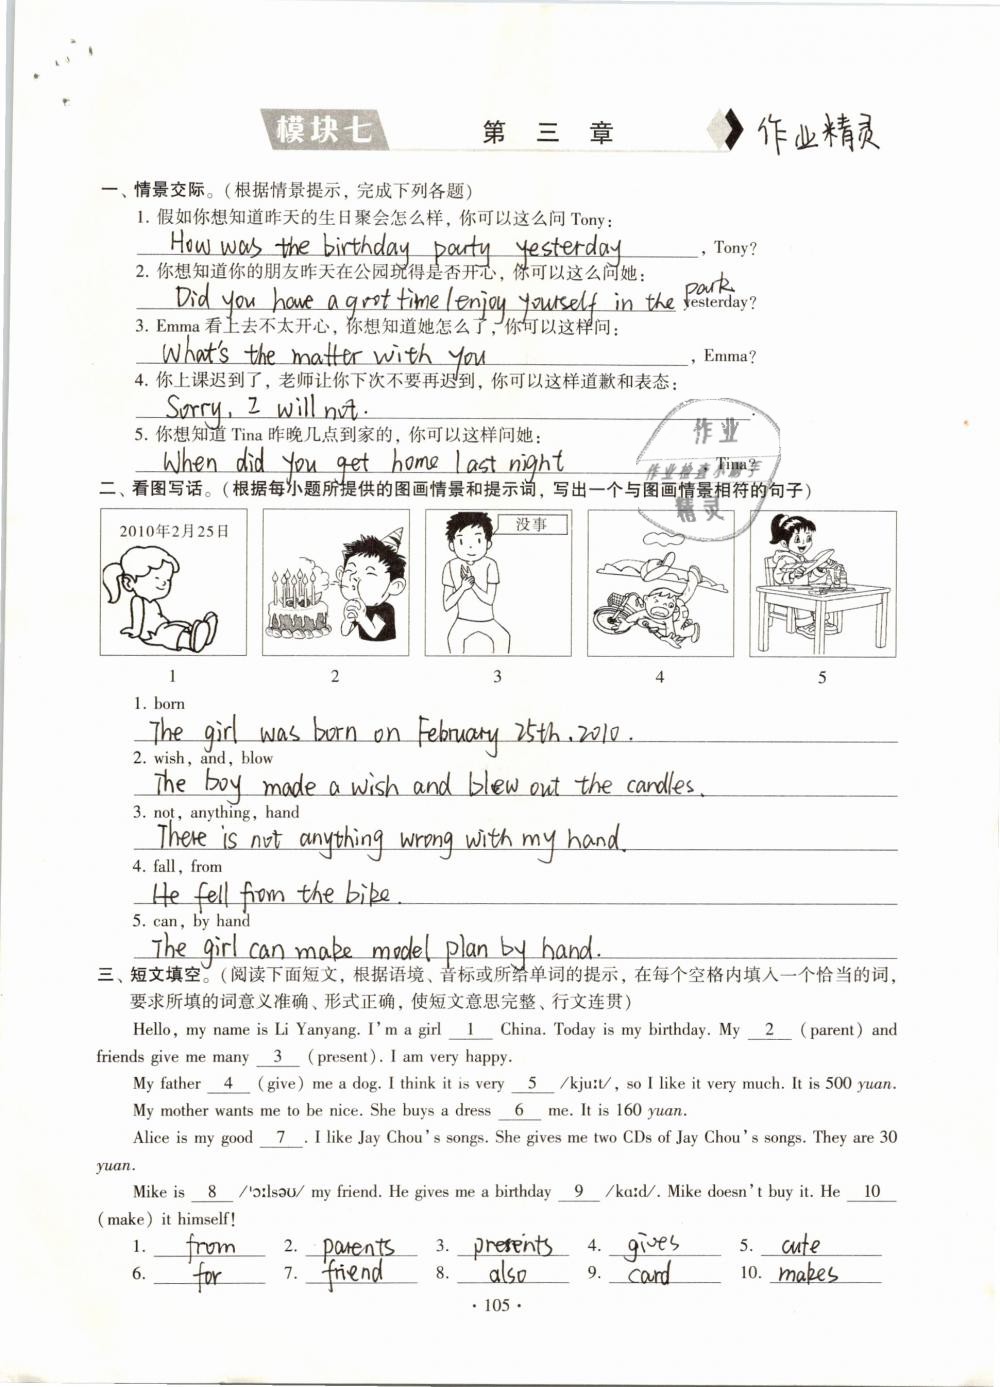 模块七 第三章 作业精灵
一、情景交际。(根据情景提示，完成下列各题)
1. 假如你想知道昨天的生日聚会怎么样，你可以这么问 Tony:
How was the birthday party yesterday, Tony?
2. 你想知道你的朋友昨天在公园玩得是否开心，你可以这么问她:
Did you have a great time/enjoy yourself in the park yesterday?
3. Emma 看上去不太开心，你想知道她怎么了，你可以这样问:
What's the matter with you, Emma?
4. 你上课迟到了，老师让你下次不要再迟到，你可以这样道歉和表态:
Sorry, I will not.
5. 你想知道 Tina 昨晚几点到家的，你可以这样问她:
When did you get home last night Tina?
作业
作业检查小助手
精灵
二、看图写话。(根据每小题所提供的图画情景和提示词，写出一个与图画情景相符的句子)
2010年2月25日 没事
1 2 3 4 5
1. born
The girl was born on February 25th, 2010.
2. wish, and, blow
The boy made a wish and blew out the candles.
3. not, anything, hand
There is not anything wrong with my hand.
4. fall, from
He fell from the bike.
5. can, by hand
The girl can make model plan by hand.
三、短文填空。(阅读下面短文，根据语境、音标或所给单词的提示，在每个空格内填入一个恰当的词，
要求所填的词意义准确、形式正确，使短文意思完整、行文连贯)
Hello, my name is Li Yanyang. I'm a girl 1 China. Today is my birthday. My 2 (parent) and
friends give me many 3 (present). I am very happy.
My father 4 (give) me a dog. I think it is very 5 /kjuːt/, so I like it very much. It is 500 yuan.
My mother wants me to be nice. She buys a dress 6 me. It is 160 yuan.
Alice is my good 7. I like Jay Chou's songs. She gives me two CDs of Jay Chou's songs. They are 30
yuan.
Mike is 8 /'ɔːlsəʊ/ my friend. He gives me a birthday 9 /kɑːd/. Mike doesn't buy it. He 10
(make) it himself!
1. from 2. parents 3. presents 4. gives 5. cute
6. for 7. friend 8. also 9. card 10. makes
· 105 ·